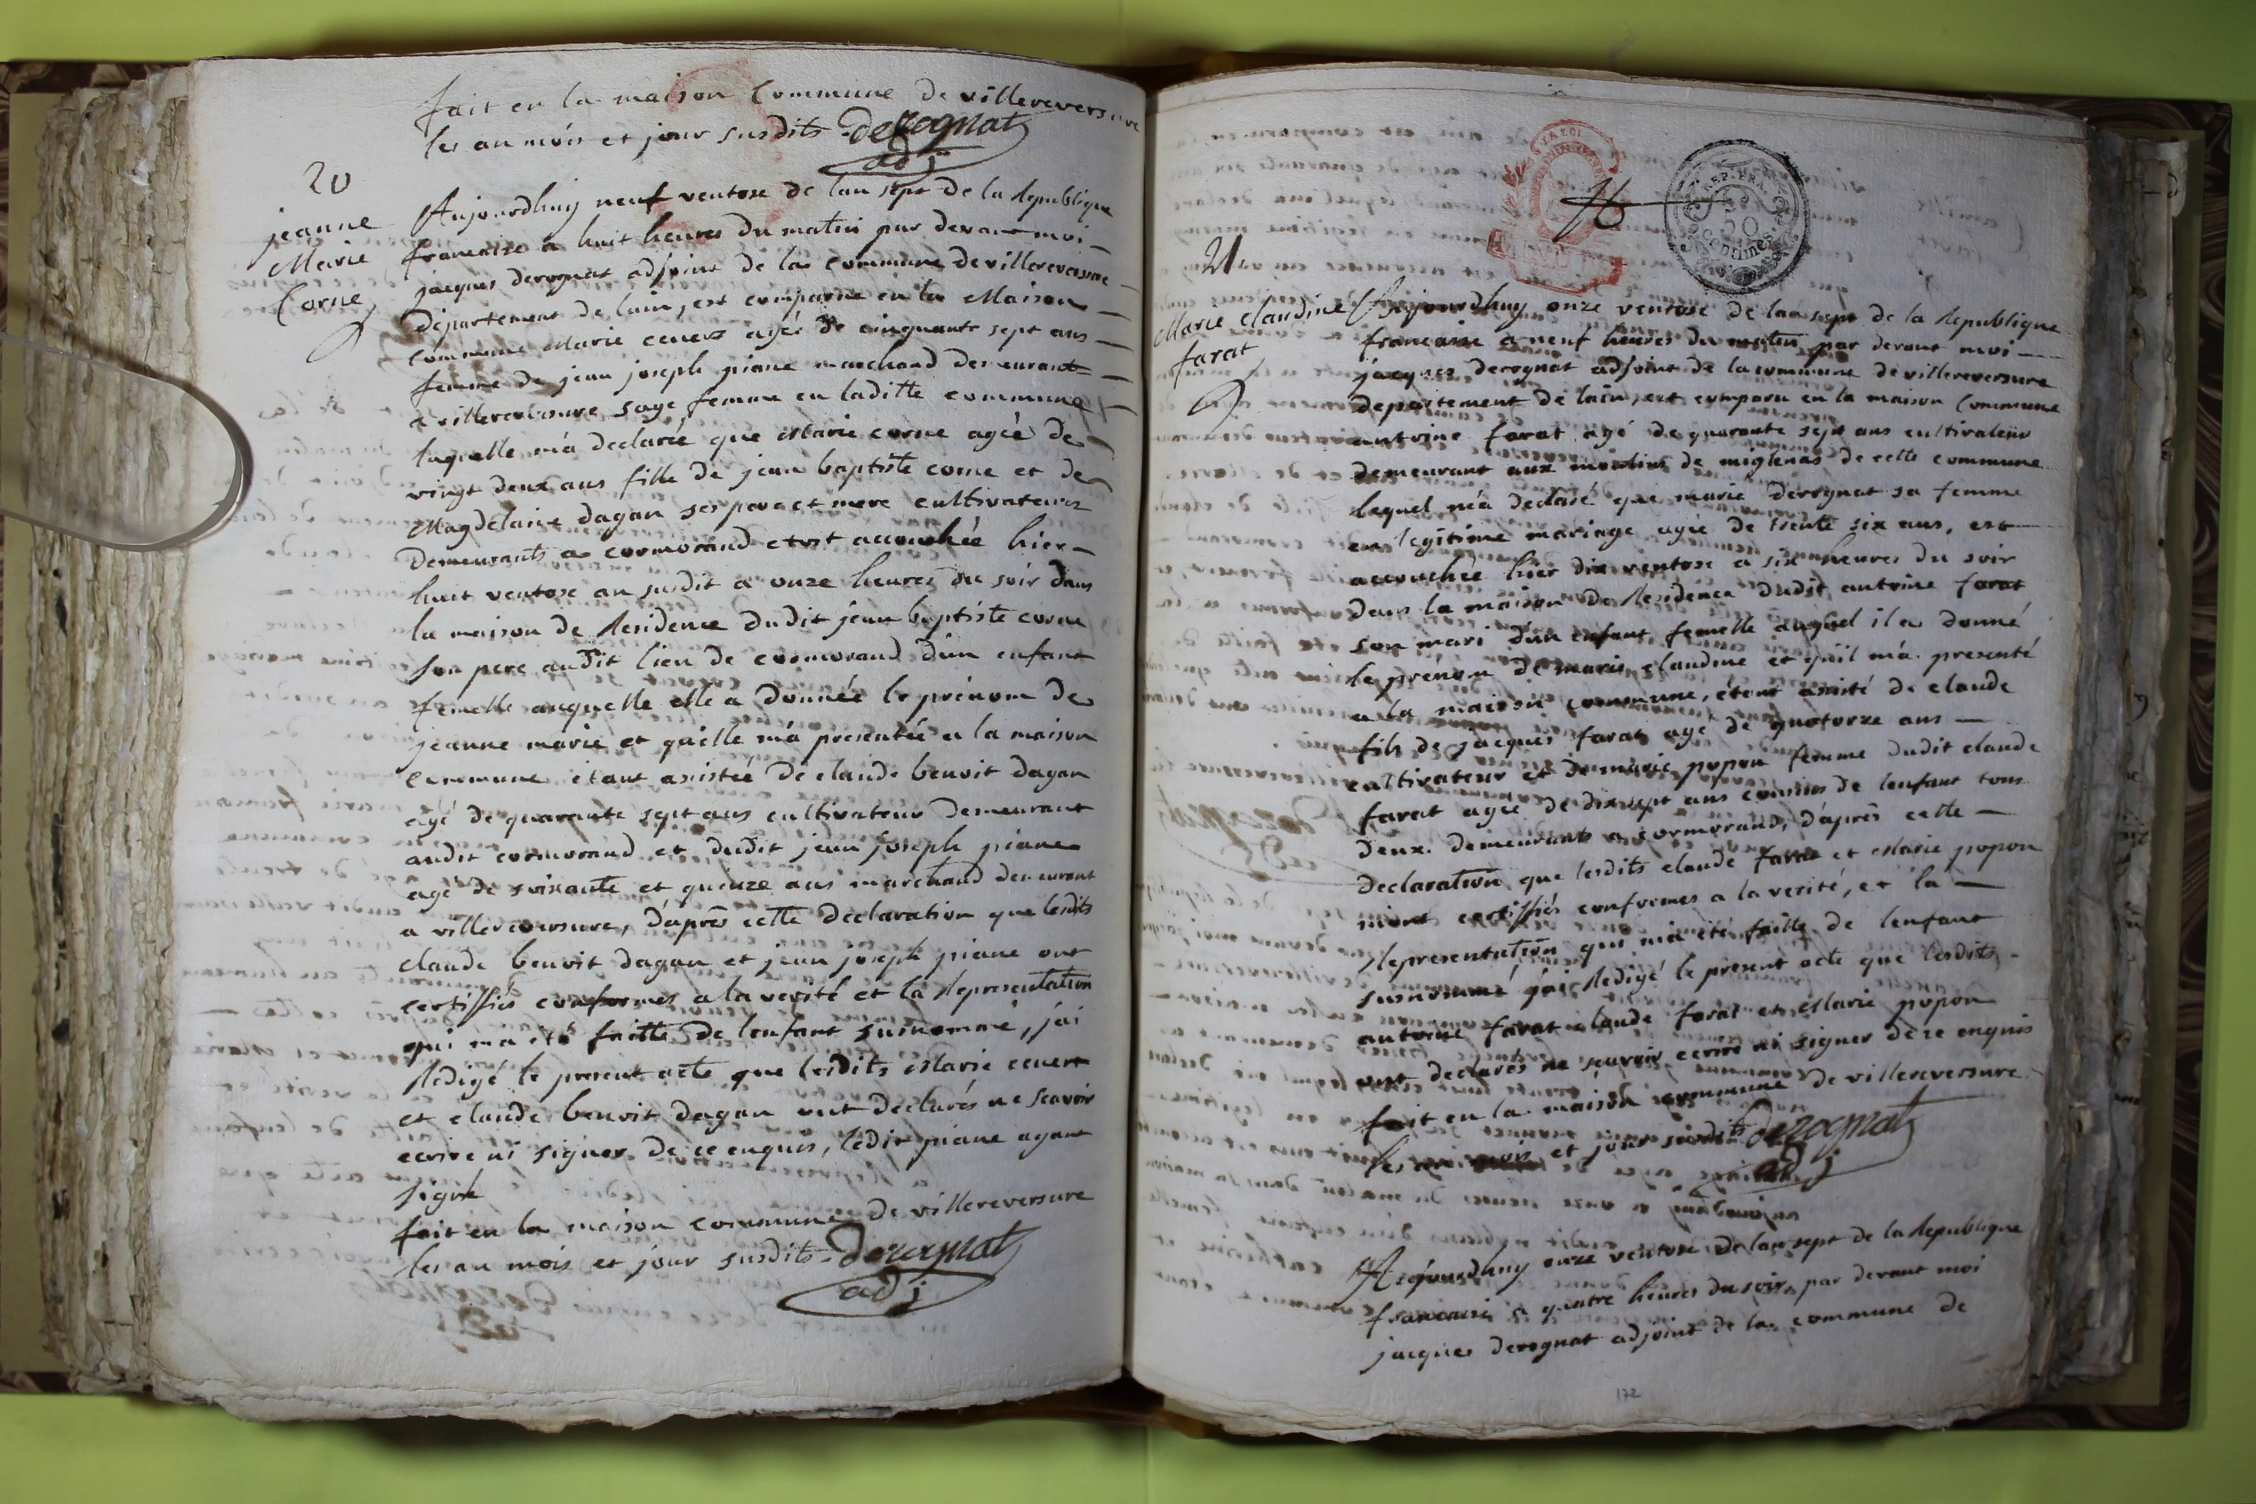 fait en la maison Commune de villereversure
les an mois et jour susdits derognat
adj
20
jeanne
Marie
Corne
Aujourdhuy neuf ventose de lan sept de la Republique
francaise a huit heures du matin par devant moi
jacques derognat adjoint de la commune de villereversure
département de lain, est comparue en la Maison
commune Marie cevert agée de cinquante sept ans
femme de jean joseph piane marchand demeurant
a villereversure sage femme en laditte commune
laquelle m'a declarée que Marie corne agée de
vingt deux ans fille de jean baptiste corne et de
Magdelaine dagan ses pere et mere cultivateurs
demeurants a cormorand etoit accouchée hier
huit ventose an susdit a onze heures du soir dans
la maison de Residence dudit jean baptiste corne
son pere audit lieu de cormorand d'un enfant
femelle auquelle elle a donnée le prénom de
jeanne marie et qu'elle m'a presentée a la maison
commune étant assistée de claude benoit dagan
agé de quarante sept ans cultivateur demeurant
audit cormorand et dudit jean joseph piane
agé de soixante et quinze ans marchand demeurant
a villereversure, d'aprês cette declaration que lesdits
claude benoit dagan et jean joseph piane ont
certiffiés conformes a la verité et la Representation
qui m'a été faitte de lenfant susnommé, j'ai
Redigé le present acte que lesdits Marie cevert
et claude benoit dagan ont declarés ne scavoir
ecrire ni signer de ce enquis, ledit piane ayant
signé
fait en la maison commune de villereversure
les an mois et jour susdits derognat
adj
REP. FRA.
50
centimes
21
Marie claudine
farat
Aujourdhuy onze ventose de lan sept de la Republique
francaise a neuf heures du matin par devant moi
jacques derognat adjoint de la commune de villereversure
departement de lain, est comparu en la maison Commune
antoine farat agé de quarante sept ans cultivateur
demeurant aux moulins de miglenas de cette commune
lequel m'a declaré que marie derognat sa femme
en legitime mariage agée de trente six ans, est
accouchée hier dix ventose a six heures du soir
dans la maison de Residence dudit antoine farat
son mari d'un enfant femelle auquel il a donné
le prénom de marie claudine et qu'il m'a presenté
a la maison commune, étant assisté de claude
fils de jacques farat agé de quatorze ans
cultivateur et de marie popon femme dudit claude
farat agée de dixsept ans cousins de lenfant tous
deux demeurants a cormorand, d'aprês cette
declaration que lesdits claude farat et Marie popon
m'ont certiffiés conformes a la verité, et la
Representation qui m'a été faitte de lenfant
susnommé j'ai Redigé le present acte que lesdits
antoine farat claude farat et Marie popon
ont declarés ne scavoir ecrire ni signer de ce enquis
fait en la maison commune de villereversure
les an mois et jour susdits derognat
adj
Aujourdhuy onze ventose de lan sept de la Republique
francaise a quatre heures du soir par devant moi
jacques derognat adjoint de la commune de
172